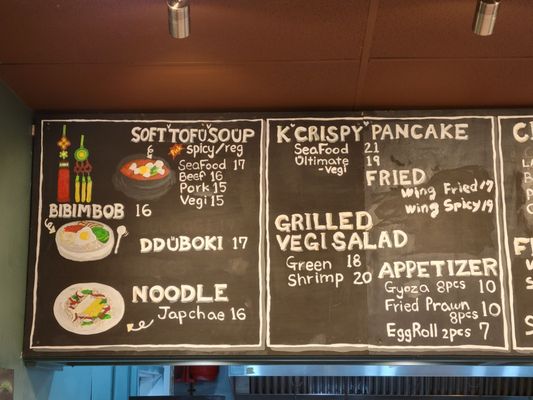 SOFT "TOFU" SOUP
spicy/reg
SeaFood 17
Beef 16
Pork 15
Vegi 15
BIBIMBOB 16
DDUBOKI 17
NOODLE
Japchae 16
K"CRISPY" PANCAKE
SeaFood 21
Ultimate 19
-vegi
FRIED
wing Fried 17
wing Spicy 19
GRILLED
VEGI SALAD
Green 18
Shrimp 20
APPETIZER
Gyoza 8pcs 10
Fried Prawn 10
8pcs
EggRoll 2pcs 7